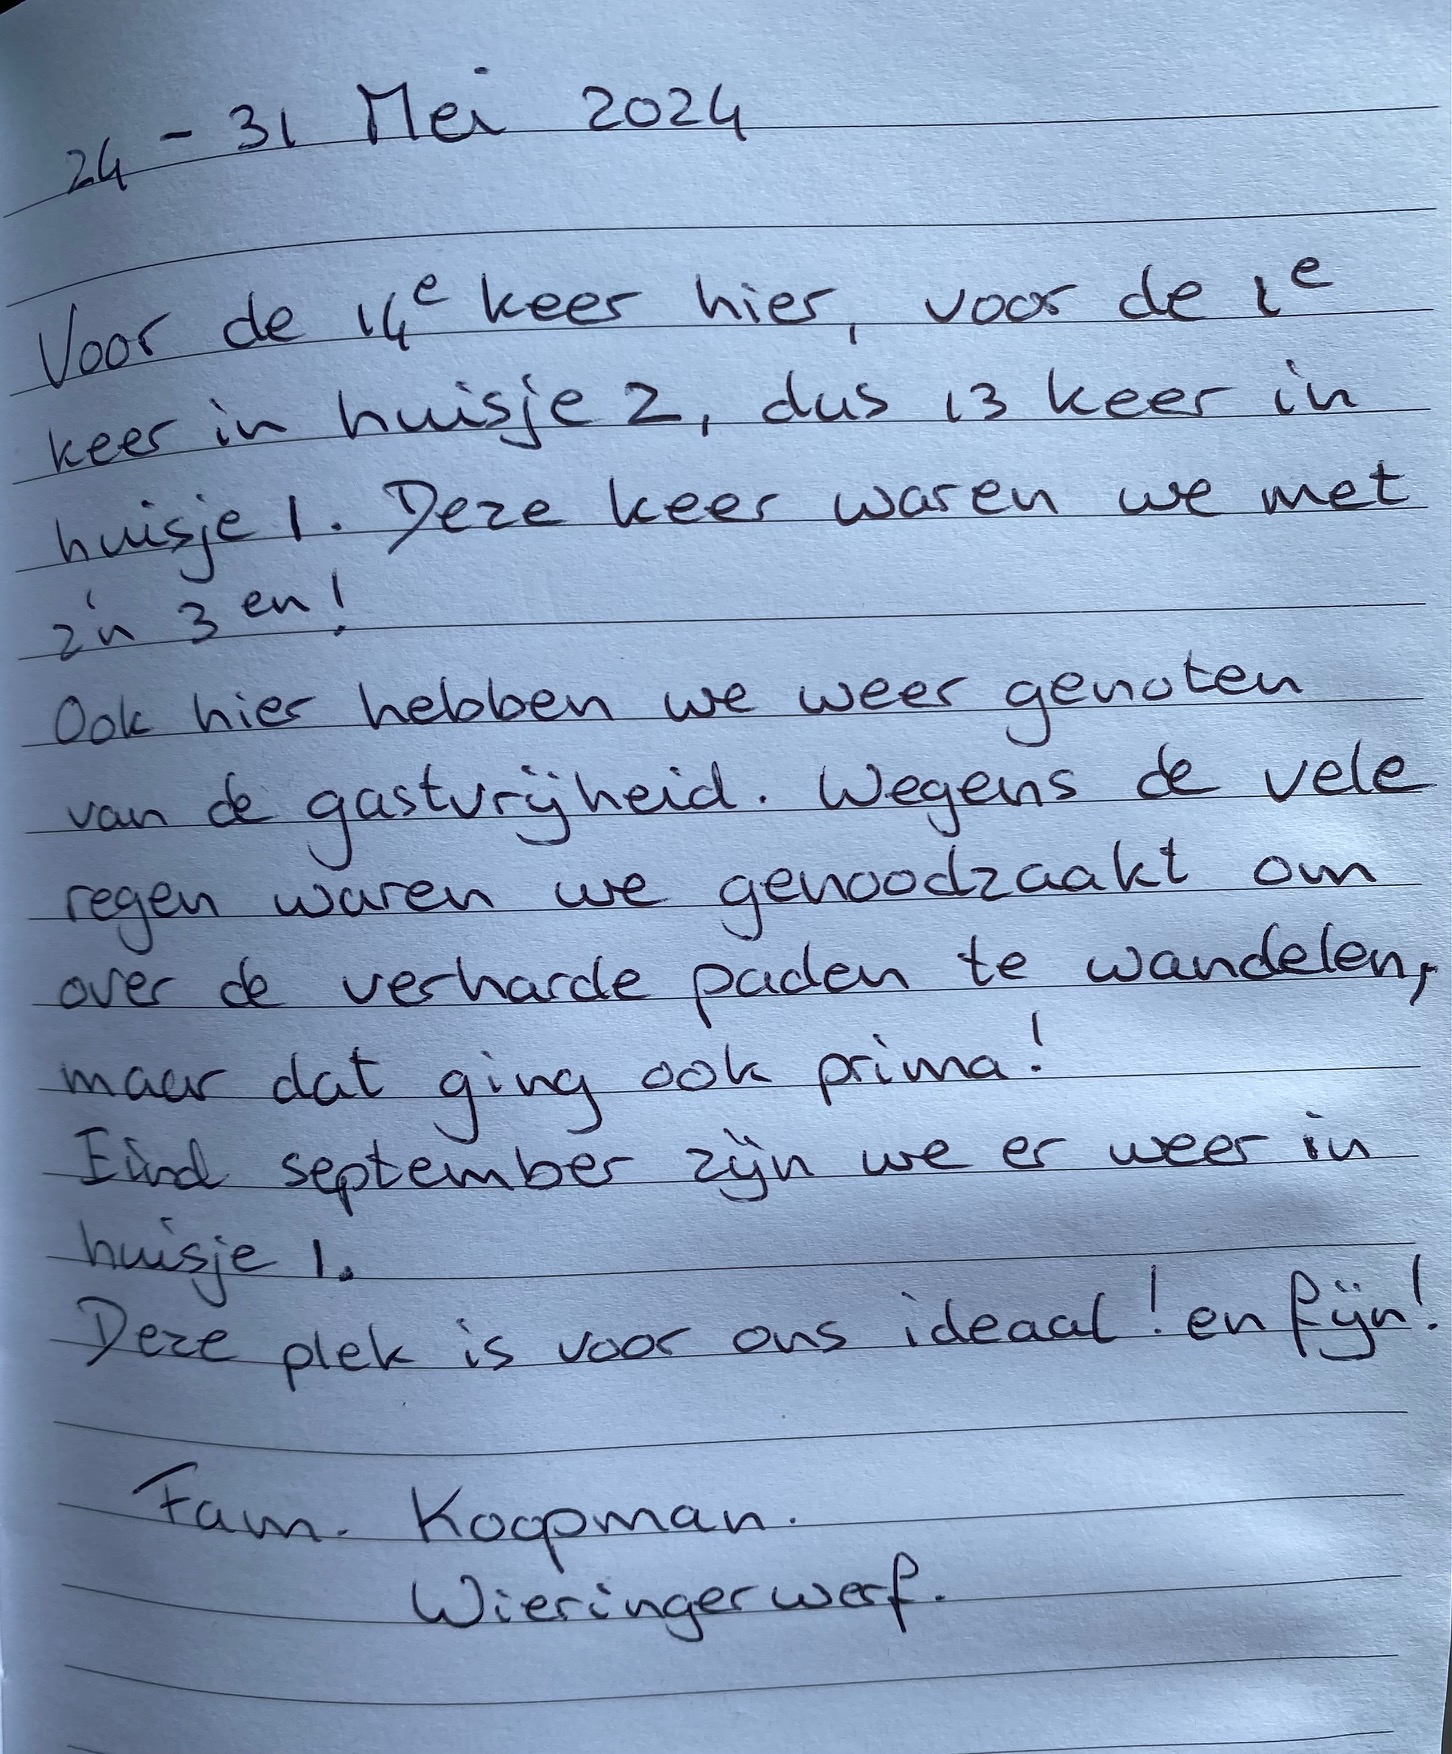 24 - 31 Mei 2024
Voor de 14e keer hier, voor de 1e
keer in huisje 2, dus 13 keer in
huisje 1. Deze keer waren we met
z'n 3en!
Ook hier hebben we weer genoten
van de gastvrijheid. Wegens de vele
regen waren we genoodzaakt om
over de verharde paden te wandelen,
maar dat ging ook prima!
Eind september zijn we er weer in
huisje 1.
Deze plek is voor ons ideaal! en fijn!
Fam. Koopman.
Wieringerwerf.